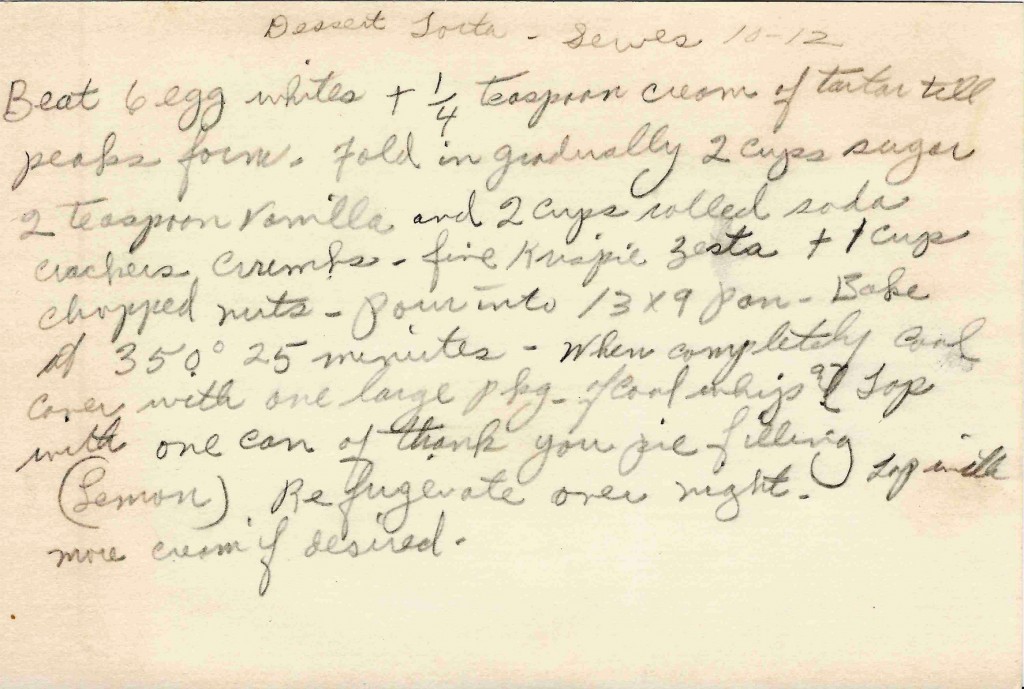 Dessert Torta - Serves 10-12
Beat 6 egg whites + 1/4 teaspoon cream of tartar till
peaks form. Fold in gradually 2 cups sugar
2 teaspoon Vanilla and 2 cups rolled soda
crackers crumbs - fine Krispie Zesta + 1 cups
chopped nuts - pour into 13 x 9 pan - Bake
at 350° 25 minutes - When completely cool
cover with one large pkg. of cool whips Top
with one can of thank you pie filling
(Lemon) Refrigerate over night. Top with
more cream if desired.